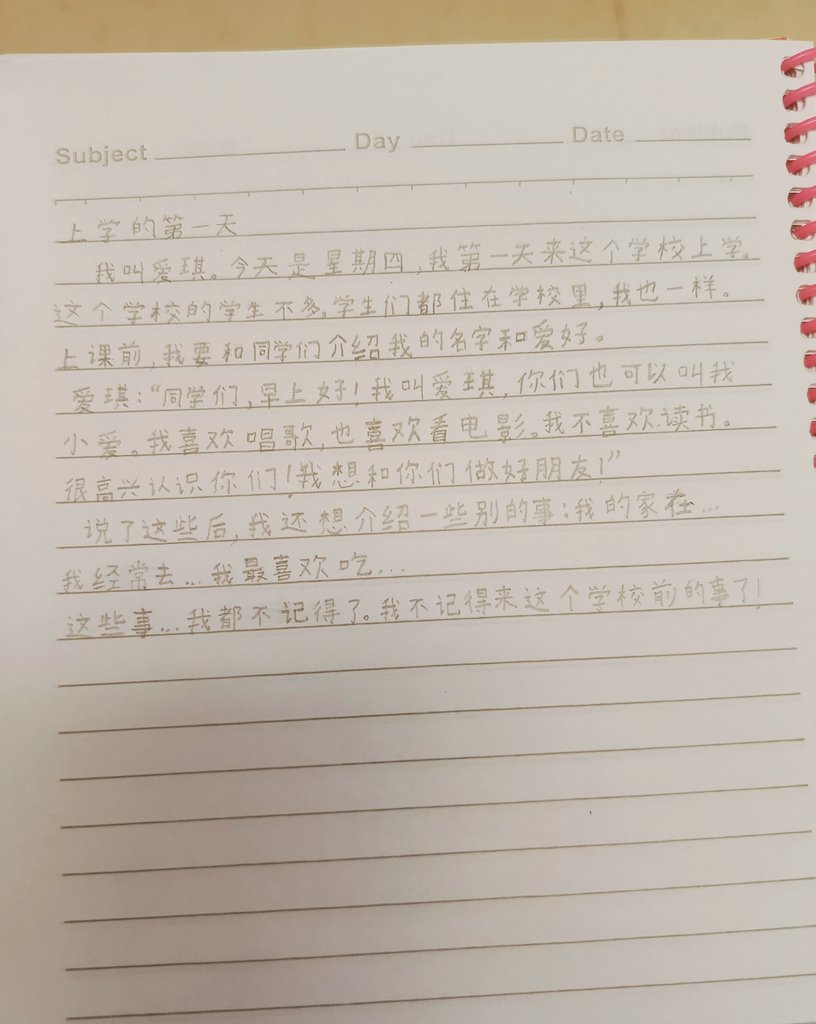 Subject Day Date
上学的第一天
我叫爱琪。今天是星期四,我第一天来这个学校上学。
这个学校的学生不多。学生们都住在学校里,我也一样。
上课前,我要和同学们介绍我的名字和爱好。
爱琪:“同学们,早上好!我叫爱琪,你们也可以叫我
小爱。我喜欢唱歌,也喜欢看电影。我不喜欢读书。
很高兴认识你们!我想和你们做好朋友!”
说了这些后,我还想介绍一些别的事:我的家在...
我经常去...我最喜欢吃...
这些事...我都不记得了。我不记得来这个学校前的事了!